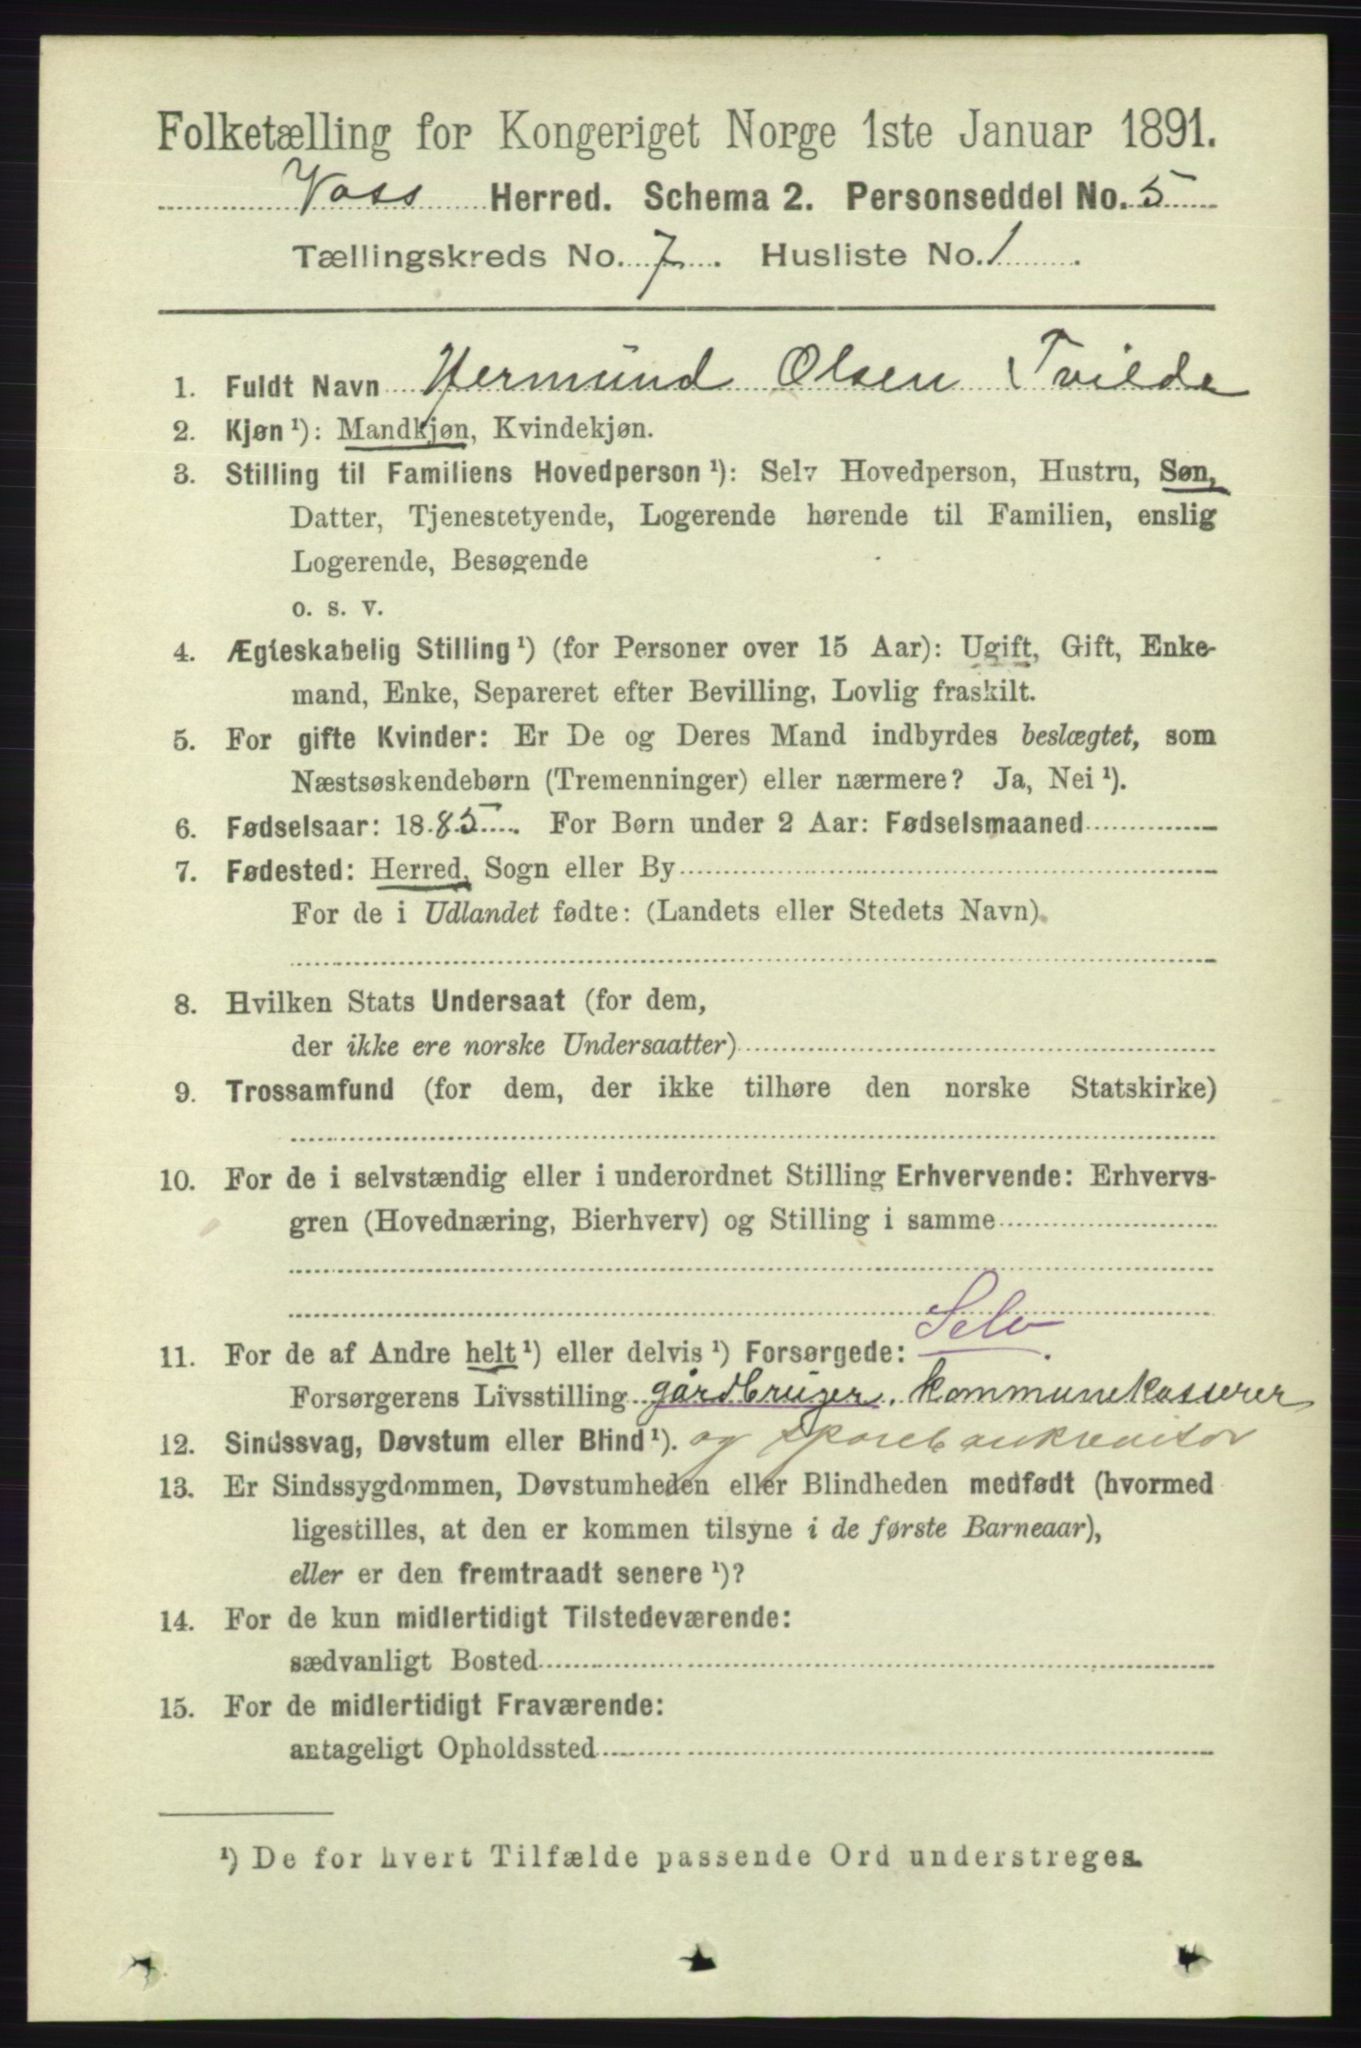 Folketælling for Kongeriget Norge 1ste Januar 1891.
Voss Herred. Schema 2. Personseddel No. 5
Tællingskreds No. 7. Husliste No. 1.
1. Fuldt Navn Hermund Olsen Tvilde
2. Kjøn ¹): Mandkjøn, Kvindekjøn.
3. Stilling til Familiens Hovedperson ¹): Selv Hovedperson, Hustru, Søn,
Datter, Tjenestetyende, Logerende hørende til Familien, enslig
Logerende, Besøgende
o. s. v.
4. Ægteskabelig Stilling ¹) (for Personer over 15 Aar): Ugift, Gift, Enke-
mand, Enke, Separeret efter Bevilling, Lovlig fraskilt.
5. For gifte Kvinder: Er De og Deres Mand indbyrdes beslægtet, som
Næstsøskendebørn (Tremenninger) eller nærmere? Ja, Nei ¹).
6. Fødselsaar: 1885. For Børn under 2 Aar: Fødselsmaaned
7. Fødested: Herred, Sogn eller By
For de i Udlandet fødte: (Landets eller Stedets Navn)
8. Hvilken Stats Undersaat (for dem,
der ikke ere norske Undersaatter)
9. Trossamfund (for dem, der ikke tilhøre den norske Statskirke)
10. For de i selvstændig eller i underordnet Stilling Erhvervende: Erhvervs-
gren (Hovednæring, Bierhverv) og Stilling i samme
Selv
11. For de af Andre helt ¹) eller delvis ¹) Forsørgede:
Forsørgerens Livsstilling gårdbruger, kommunekasserer
12. Sindssvag, Døvstum eller Blind ¹). og sparebankrevisor
13. Er Sindssygdommen, Døvstumheden eller Blindheden medfødt (hvormed
ligestilles, at den er kommen tilsyne i de første Barneaar),
eller er den fremtraadt senere ¹)?
14. For de kun midlertidigt Tilstedeværende:
sædvanligt Bosted
15. For de midlertidigt Fraværende:
antageligt Opholdssted
¹) De for hvert Tilfælde passende Ord understreges.